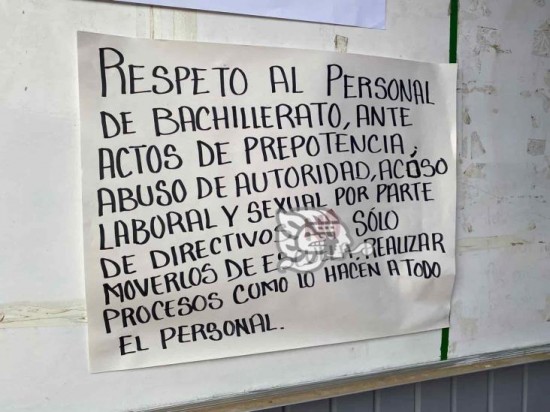 RESPETO AL PERSONAL
DE BACHILLERATO, ANTE
ACTOS DE PREPOTENCIA,
ABUSO DE AUTORIDAD, ACOSO
LABORAL Y SEXUAL POR PARTE
DE DIRECTIVOS SÓLO
MOVERLOS DE ESCUELA. REALIZAR
PROCESOS COMO LO HACEN A TODO
EL PERSONAL.